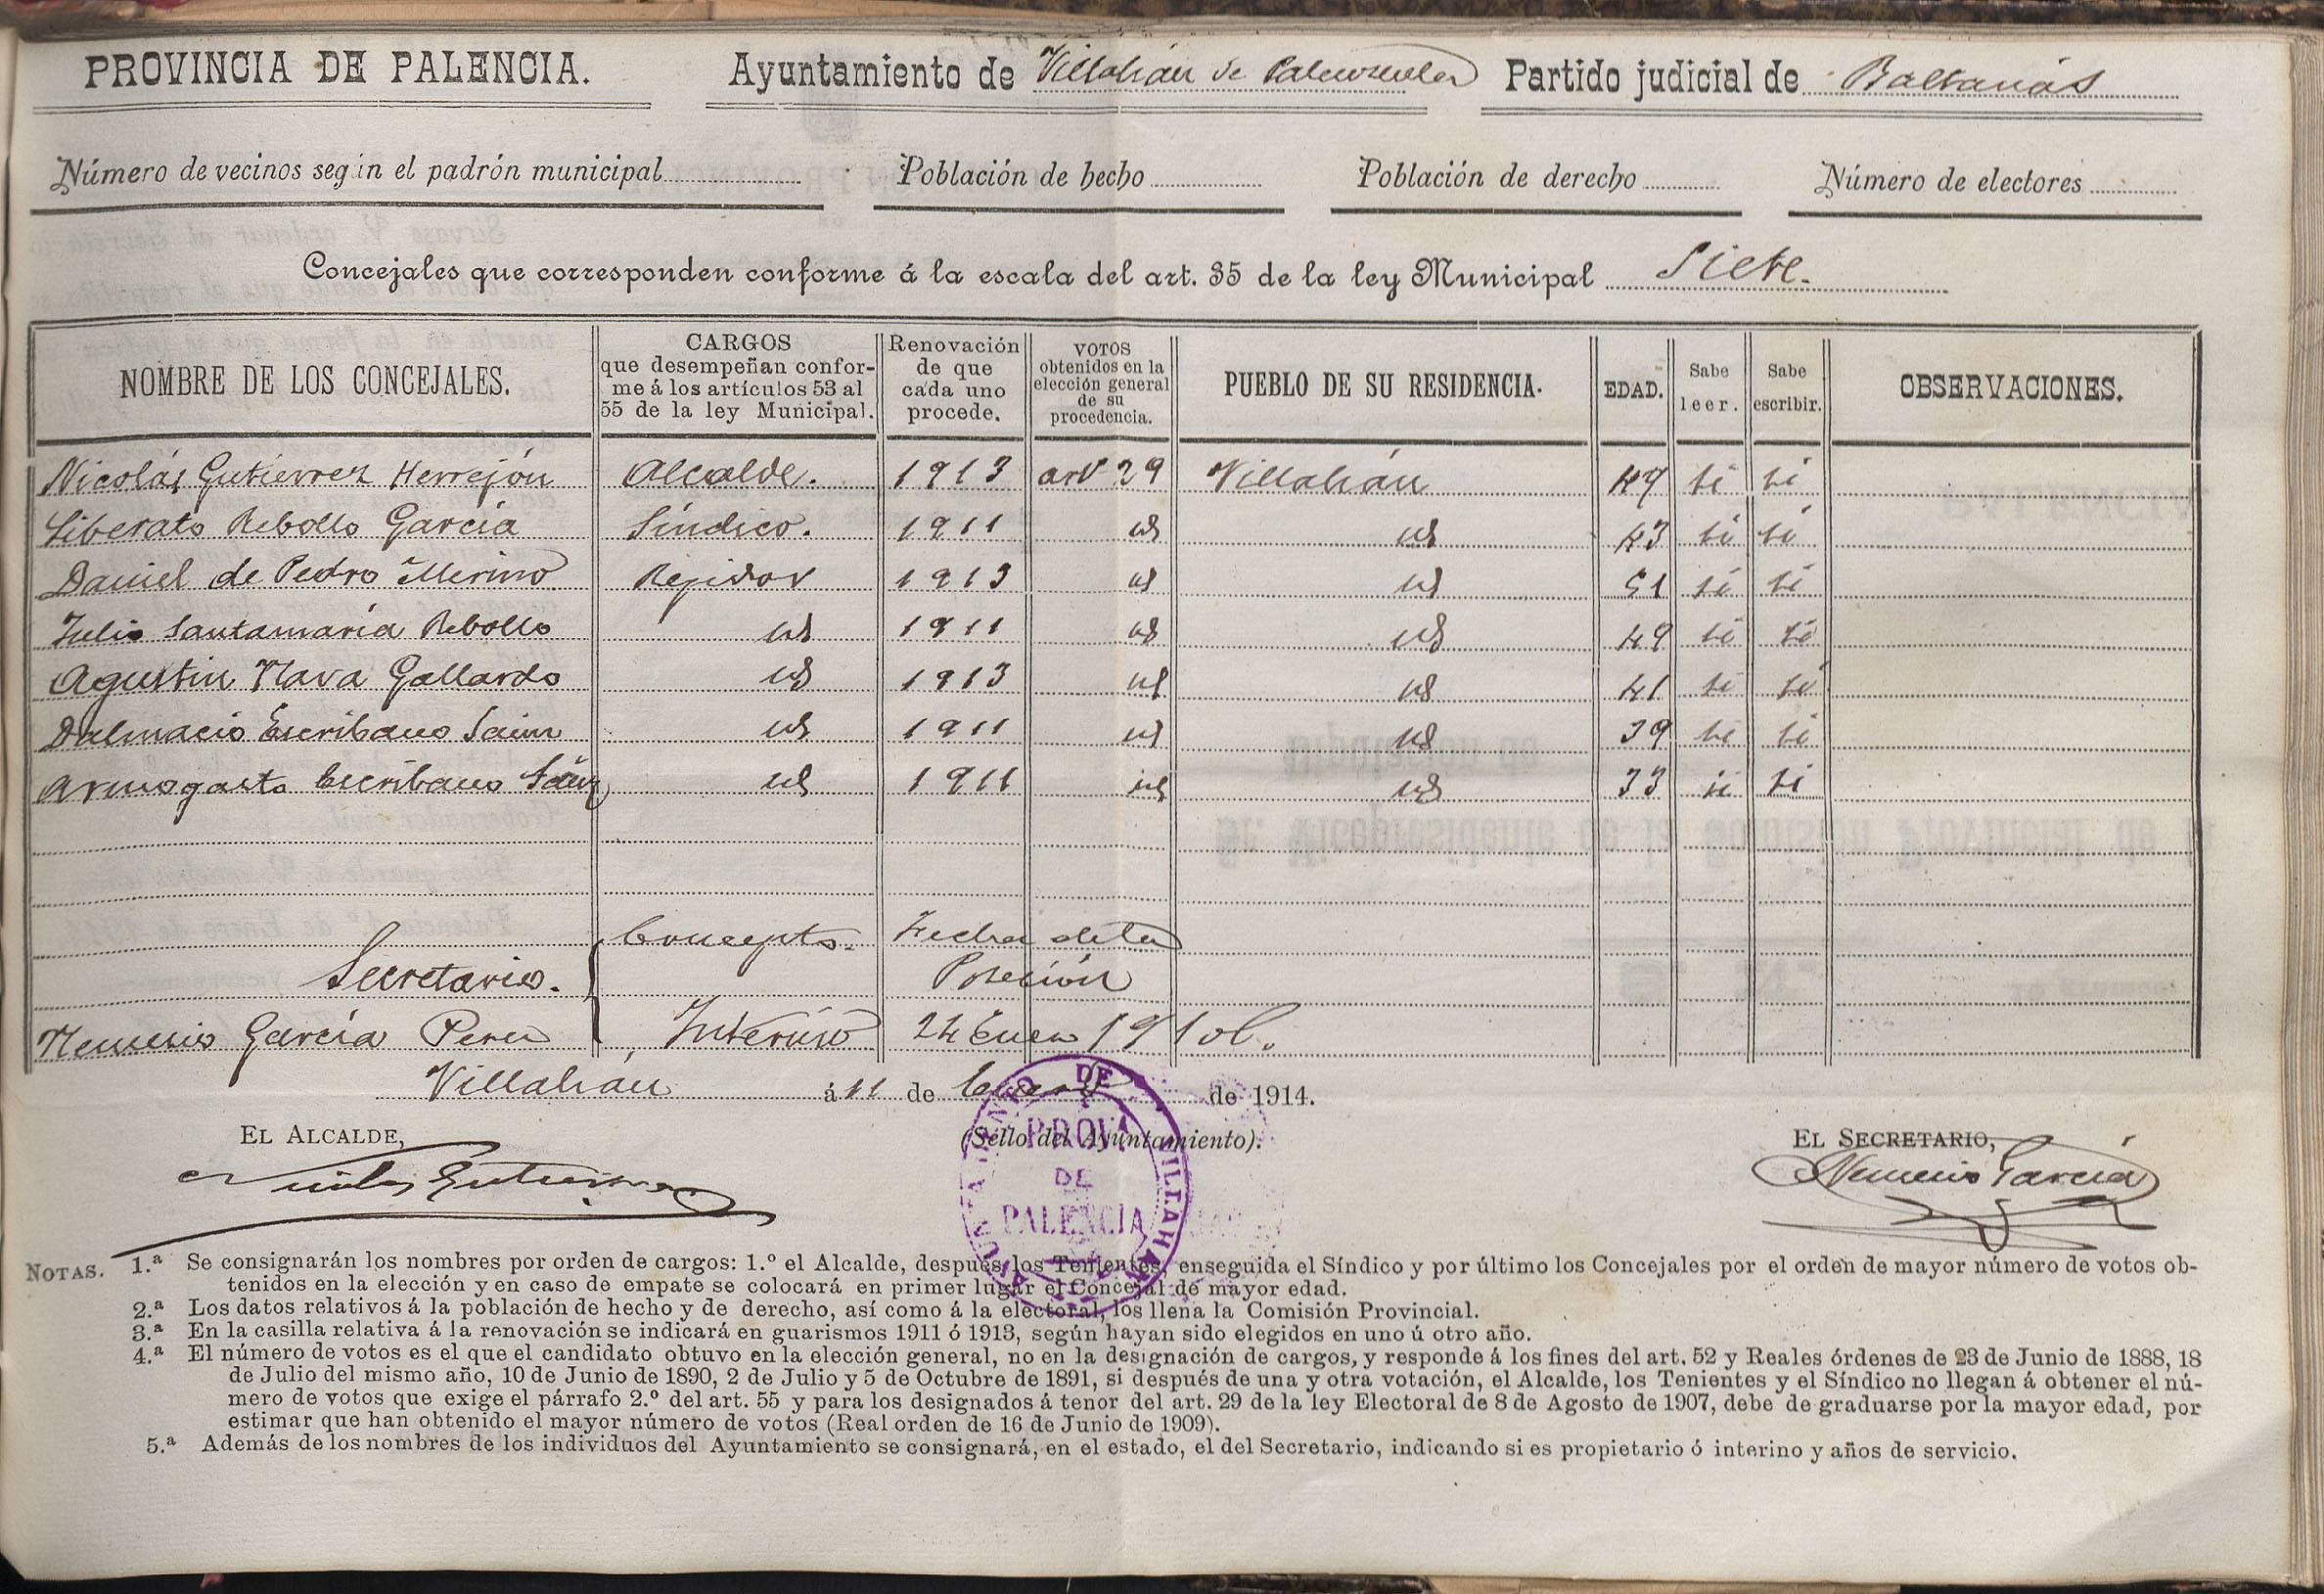 PROVINCIA DE PALENCIA. Ayuntamiento de Villahán de Palenzuela Partido judicial de Baltanás
Número de vecinos según el padrón municipal Población de hecho Población de derecho Número de electores
Concejales que corresponden conforme á la escala del art. 35 de la ley Municipal Siete.
NOMBRE DE LOS CONCEJALES. CARGOS que desempeñan conforme á los artículos 53 al 55 de la ley Municipal. Renovación de que cada uno procede. VOTOS obtenidos en la elección general de su procedencia. PUEBLO DE SU RESIDENCIA. EDAD. Sabe leer. Sabe escribir. OBSERVACIONES.
Nicolás Gutierrez Herrejón Alcalde. 1913 artº 29 Villahán 47 si si
Liberato Rebollo García Síndico. 1911 id id 43 si si
Daniel de Pedro Merino Regidor 1913 id id 51 si si
Julio Santamaría Rebollo id 1911 id id 49 si si
Agustin Nava Gallardo id 1913 id id 41 si si
Dalmacio Escribano Sainz id 1911 id id 39 si si
Armogasto Escribano Sainz id 1911 id id 33 si si
Concepto. Fecha de la
Secretario. Posesión
Nemesio García Perez Interino 24 Enero 191
Villahán á 11 de Enero de 1914.
EL ALCALDE, (Sello del Ayuntamiento). EL SECRETARIO,
Nicolas Gutierrez Nemesio García
AYUNTAMIENTO DE VILLAHAN
PROVª
DE
PALENCIA
NOTAS. 1.ª Se consignarán los nombres por orden de cargos: 1.º el Alcalde, después los Tenientes, enseguida el Síndico y por último los Concejales por el orden de mayor número de votos ob-
tenidos en la elección y en caso de empate se colocará en primer lugar el Concejal de mayor edad.
2.ª Los datos relativos á la población de hecho y de derecho, así como á la electoral, los llena la Comisión Provincial.
3.ª En la casilla relativa á la renovación se indicará en guarismos 1911 ó 1913, según hayan sido elegidos en uno ú otro año.
4.ª El número de votos es el que el candidato obtuvo en la elección general, no en la designación de cargos, y responde á los fines del art. 52 y Reales órdenes de 23 de Junio de 1888, 18
de Julio del mismo año, 10 de Junio de 1890, 2 de Julio y 5 de Octubre de 1891, si después de una y otra votación, el Alcalde, los Tenientes y el Síndico no llegan á obtener el nú-
mero de votos que exige el párrafo 2.º del art. 55 y para los designados á tenor del art. 29 de la ley Electoral de 8 de Agosto de 1907, debe de graduarse por la mayor edad, por
estimar que han obtenido el mayor número de votos (Real orden de 16 de Junio de 1909).
5.ª Además de los nombres de los individuos del Ayuntamiento se consignará, en el estado, el del Secretario, indicando si es propietario ó interino y años de servicio.